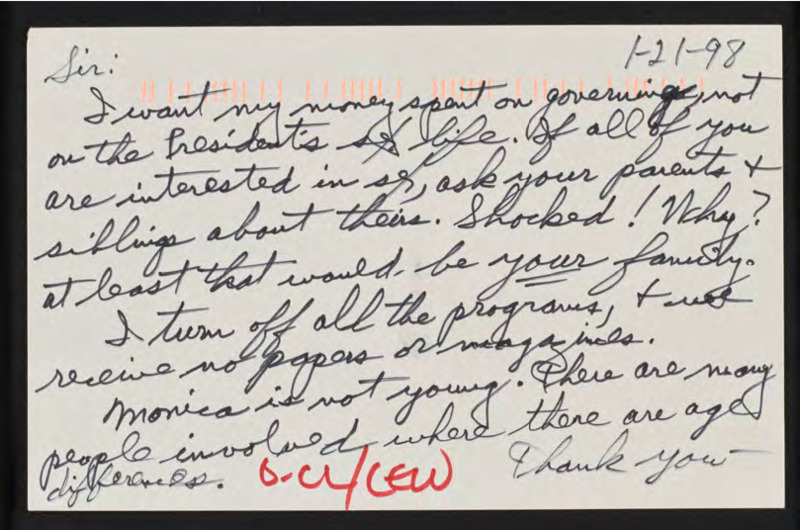 Sir:
1-21-98
I want my money spent on governing, not
on the President's sex life. If all of you
are interested in sex, ask your parents +
siblings about theirs. Shocked! Why?
at least that would be your family.
I turn off all the programs, +
receive no papers or magazines.
Monica is not young. There are many
people involved where there are age
differences.
Thank you